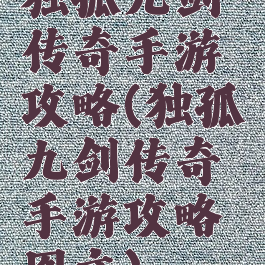 独孤九剑
传奇手游
攻略(独孤
九剑传奇
手游攻略
图文)